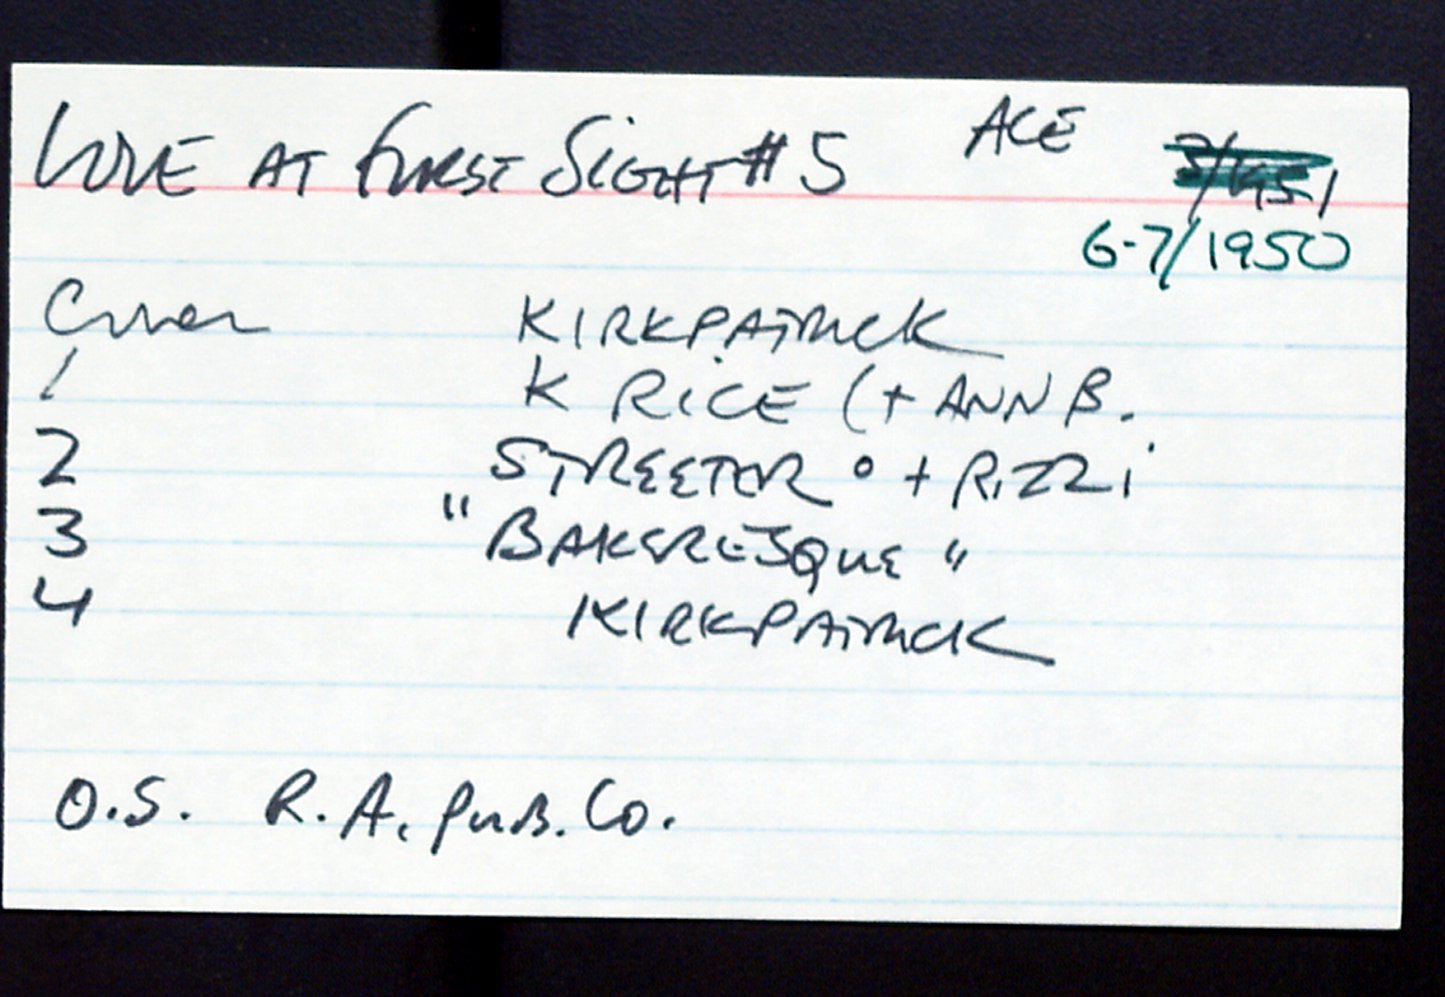 LOVE AT FIRST SIGHT #5 ACE
6-7/1950
Cover KIRKPATRICK
1 K RICE (+ ANN B.
2 STREETER ° + RIZZI
3 "BAKERESQUE"
4 KIRKPATRICK
O.S. R.A. PUB. Co.